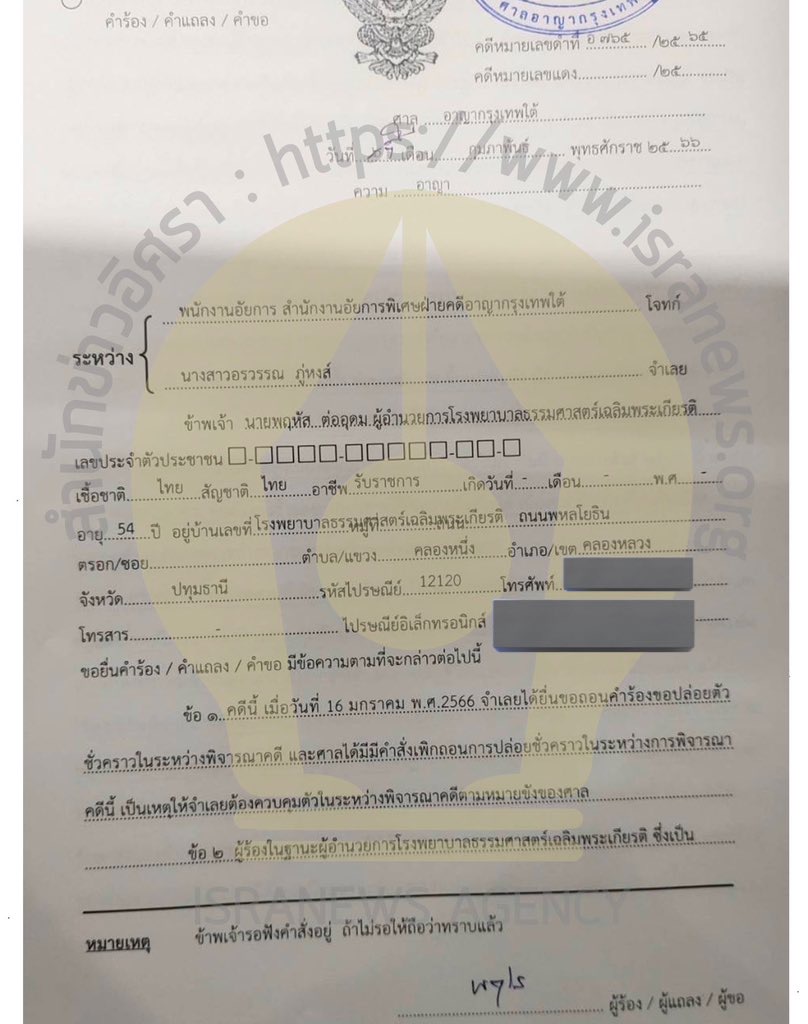 คำร้อง / คำแถลง / คำขอ
ศาลอาญากรุงเทพใต้
คดีหมายเลขดำที่ อ ๗๖๕ /๒๕ ๖๕
คดีหมายเลขแดง................/๒๕............
ศาล ....อาญากรุงเทพใต้
วันที่ ๒๗ เดือน กุมภาพันธ์ พุทธศักราช ๒๕ ๖๖
ความ อาญา
พนักงานอัยการ สำนักงานอัยการพิเศษฝ่ายคดีอาญากรุงเทพใต้ โจทก์
ระหว่าง
นางสาวอรวรรณ ภู่หงส์ จำเลย
ข้าพเจ้า นายพฤหัส ต่ออุดม ผู้อำนวยการโรงพยาบาลธรรมศาสตร์เฉลิมพระเกียรติ
เลขประจำตัวประชาชน
เชื้อชาติ ไทย สัญชาติ ไทย อาชีพ รับราชการ เกิดวันที่ - เดือน - พ.ศ. -
อายุ 54 ปี อยู่บ้านเลขที่ โรงพยาบาลธรรมศาสตร์เฉลิมพระเกียรติ ถนนพหลโยธิน
ตรอก/ซอย ตำบล/แขวง คลองหนึ่ง อำเภอ/เขต คลองหลวง
จังหวัด ปทุมธานี รหัสไปรษณีย์ 12120 โทรศัพท์
โทรสาร - ไปรษณีย์อิเล็กทรอนิกส์
ขอยื่นคำร้อง / คำแถลง / คำขอ มีข้อความตามที่จะกล่าวต่อไปนี้
ข้อ ๑ คดีนี้ เมื่อวันที่ 16 มกราคม พ.ศ.2566 จำเลยได้ยื่นขอถอนคำร้องขอปล่อยตัว
ชั่วคราวในระหว่างพิจารณาคดี และศาลได้มีมีคำสั่งเพิกถอนการปล่อยชั่วคราวในระหว่างการพิจารณา
คดีนี้ เป็นเหตุให้จำเลยต้องควบคุมตัวในระหว่างพิจารณาคดีตามหมายขังของศาล
ข้อ ๒ ผู้ร้องในฐานะผู้อำนวยการโรงพยาบาลธรรมศาสตร์เฉลิมพระเกียรติ ซึ่งเป็น
หมายเหตุ ข้าพเจ้ารอฟังคำสั่งอยู่ ถ้าไม่รอให้ถือว่าทราบแล้ว
ผู้ร้อง / ผู้แถลง / ผู้ขอ
สำนักข่าวอิศรา : https://www.isranews.org
ISRANEWS AGENCY